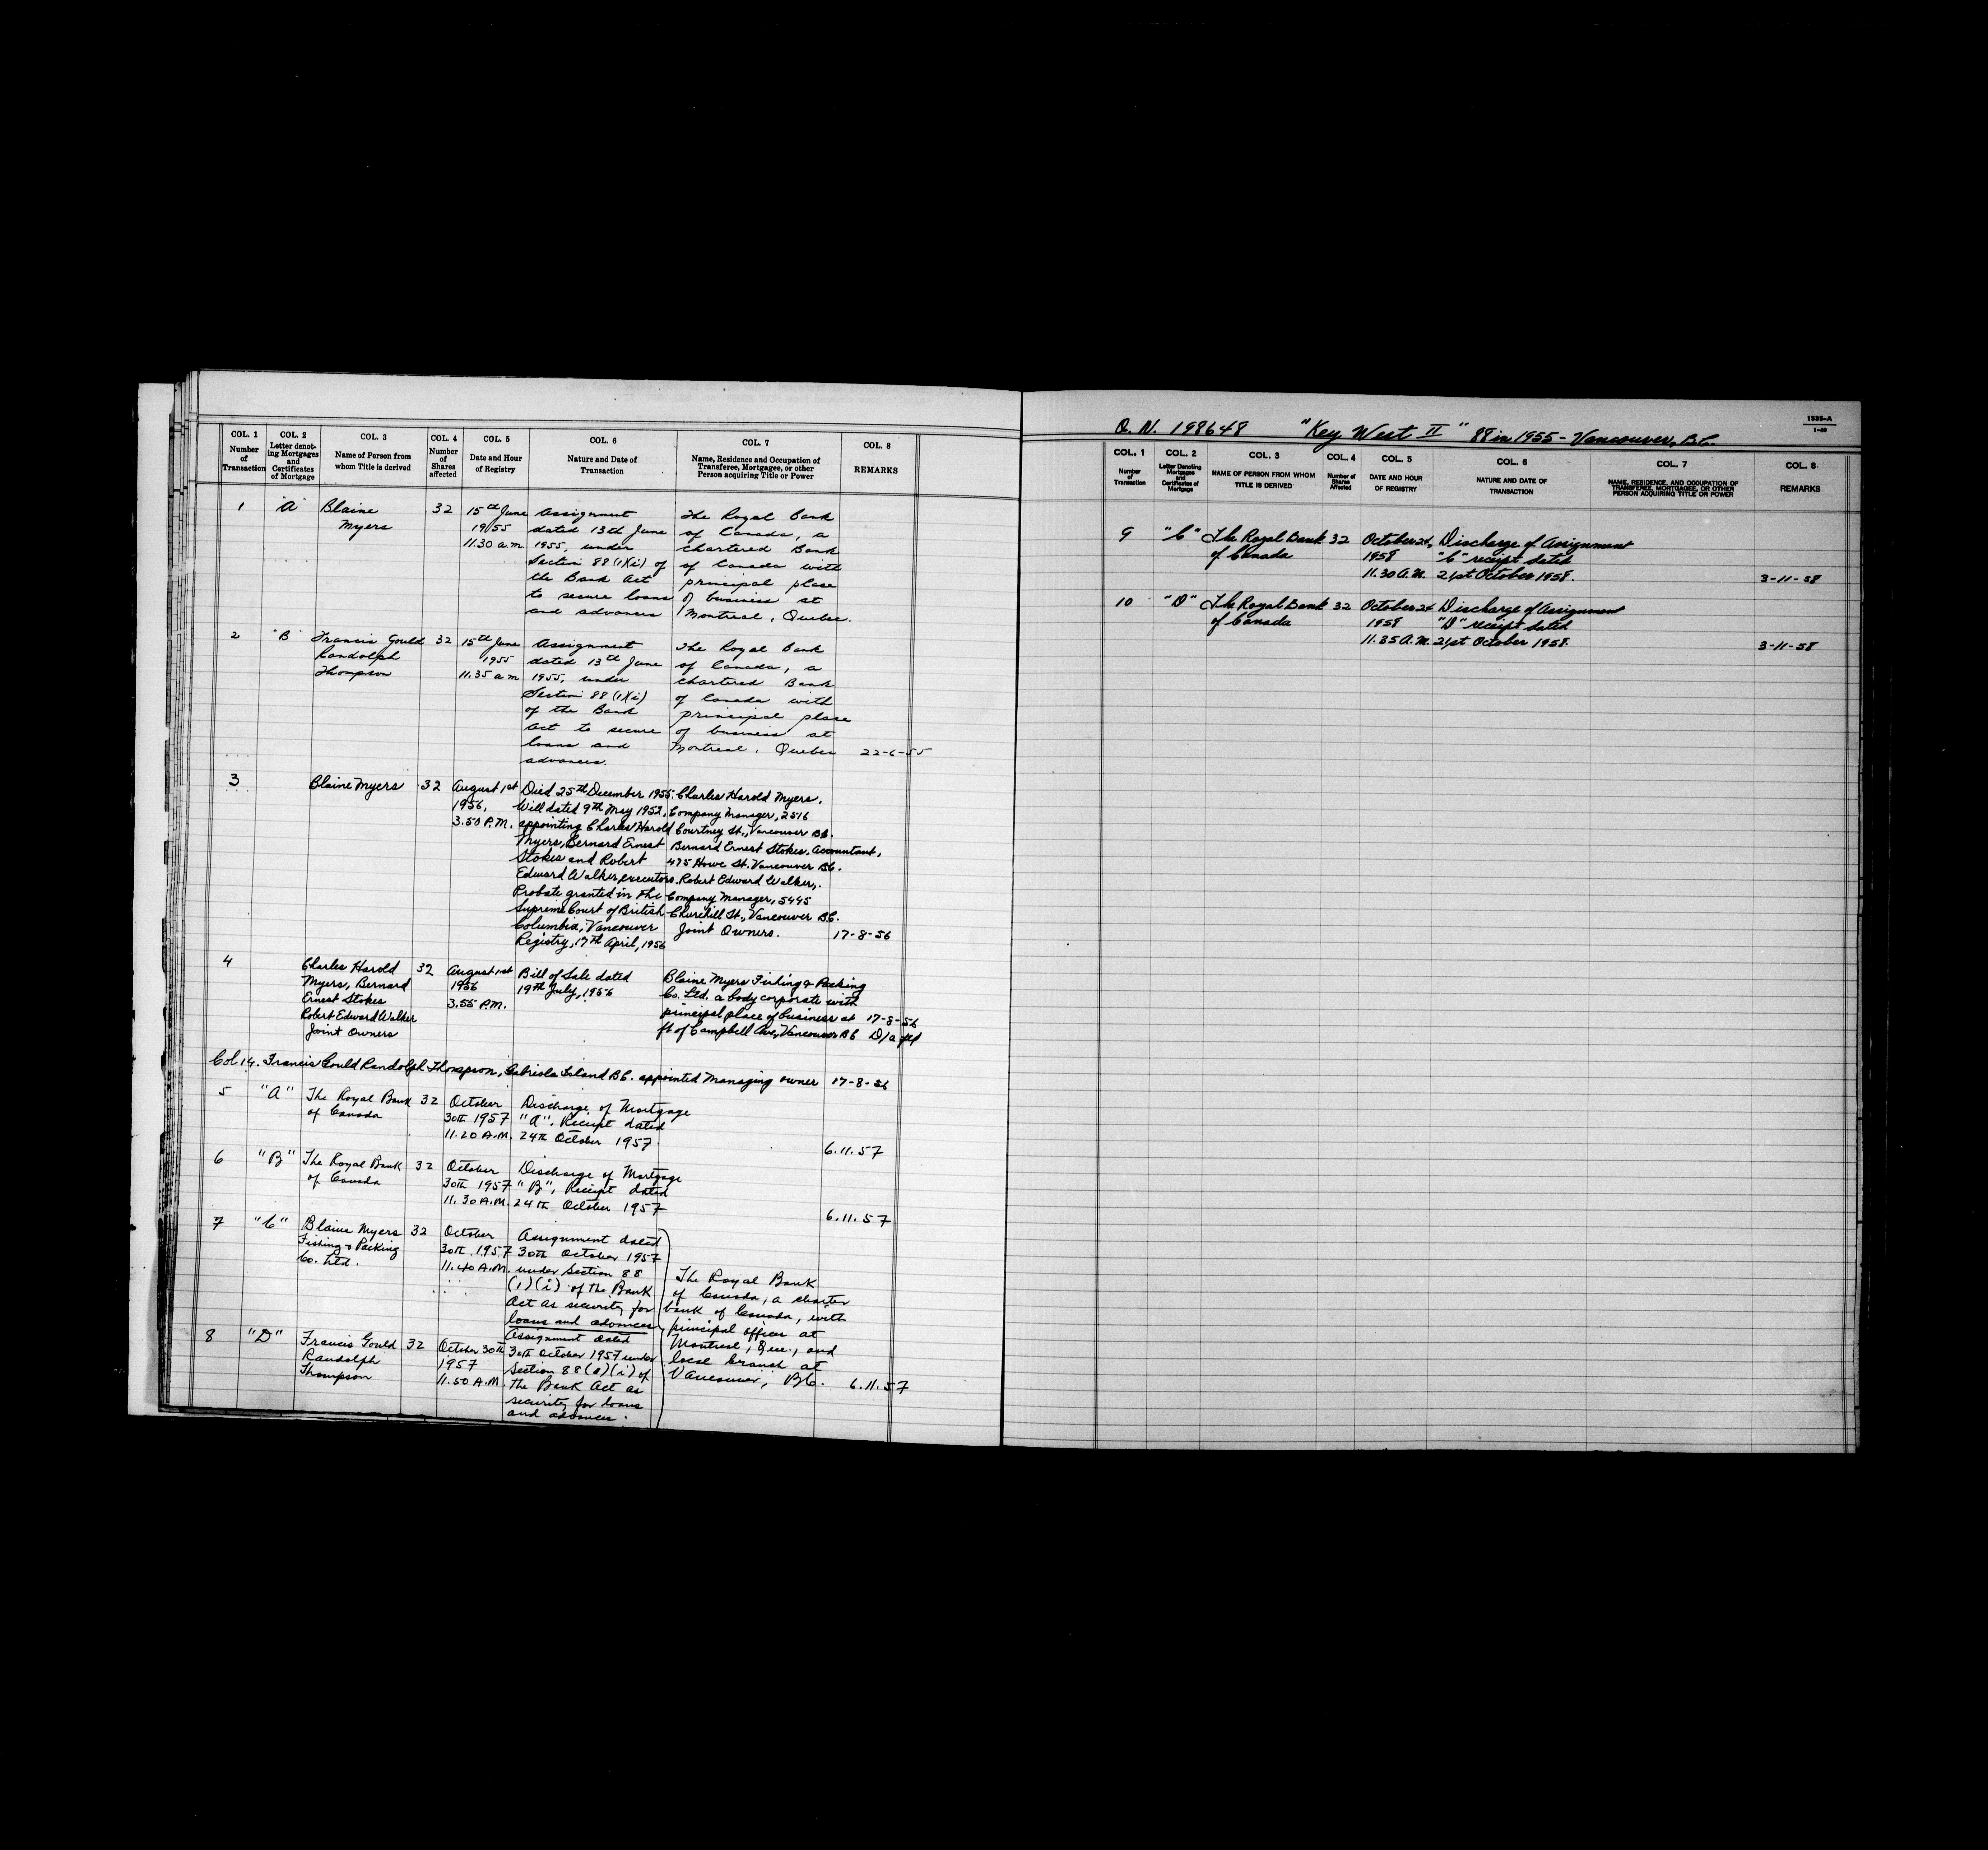 COL. 1 COL. 2 COL. 3 COL. 4 COL. 5 COL. 6 COL. 7 COL. 8
Number of Transaction
Letter denoting Mortgages and Certificates of Mortgage
Name of Person from whom Title is derived
Number of Shares affected
Date and Hour of Registry
Nature and Date of Transaction
Name, Residence and Occupation of Transferee, Mortgagee, or other Person acquiring Title or Power
REMARKS
1 "A" Blaine 32 15th June Assignment The Royal Bank
Myers 1955 dated 13th June of Canada, a
11.30 a.m. 1955, under chartered Bank
Section 88 (1)(i) of of Canada with
the Bank Act principal place
to secure loans of business at
and advances Montreal, Quebec.
2 "B" Francis Gould 32 15th June Assignment The Royal Bank
Randolph 1955 dated 13th June of Canada, a
Thompson 11.35 a.m 1955, under chartered Bank
Section 88 (1)(i) of Canada with
of the Bank principal place
Act to secure of business at
loans and Montreal, Quebec 22-6-55
advances.
3 Blaine Myers 32 August 1st Died 25th December 1955. Charles Harold Myers,
1956, Will dated 9th May 1952, Company Manager, 2516
3.50 P.M. appointing Charles Harold Courtney St., Vancouver B.C.
Myers, Bernard Ernest Bernard Ernest Stokes, Accountant,
Stokes and Robert 475 Howe St. Vancouver B.C.
Edward Walker, executors. Robert Edward Walker,
Probate granted in the Company Manager, 5495
Supreme Court of British Churchill St., Vancouver B.C.
Columbia, Vancouver Joint Owners. 17-8-56
Registry, 17th April, 1956
4 Charles Harold 32 August 1st Bill of Sale dated Blaine Myers Fishing & Packing
Myers, Bernard 1956 19th July, 1956 Co. Ltd. a body corporate with
Ernest Stokes 3.55 P.M. principal place of business at 17-8-56
Robert Edward Walker ft of Campbell Ave, Vancouver B.C D/a
Joint Owners
Col 14. Francis Gould Randolph Thompson, Gabriola Island B.C. appointed Managing owner 17-8-56
5 "A" The Royal Bank 32 October Discharge of Mortgage
of Canada 30th 1957 "A". Receipt dated
11.20 A.M. 24th October 1957. 6.11.57
6 "B" The Royal Bank 32 October Discharge of Mortgage
of Canada 30th 1957 "B", Receipt dated
11.30 A.M. 24th October 1957 6.11.57
7 "C" Blaine Myers 32 October Assignment dated
Fishing & Packing 30th 1957 30th October 1957
Co. Ltd. 11.40 A.M. under Section 88 The Royal Bank
(1)(i) of the Bank of Canada, a charter
Act as security for bank of Canada, with
loans and advances principal offices at
8 "D" Francis Gould 32 October 30th Assignment dated Montreal, Que., and
Randolph 1957 30th October 1957 under local branch at
Thompson 11.50 A.M. Section 88 (1)(i) of Vancouver, B.C. 6.11.57
the Bank Act as
security for loans
and advances.
1535-A
1-49
O. N. 198648 "Key West II" 88 in 1955 - Vancouver, B.C.
COL. 1 COL. 2 COL. 3 COL. 4 COL. 5 COL. 6 COL. 7 COL. 8
Number of Transaction
Letter Denoting Mortgages and Certificates of Mortgage
NAME OF PERSON FROM WHOM TITLE IS DERIVED
Number of Shares Affected
DATE AND HOUR OF REGISTRY
NATURE AND DATE OF TRANSACTION
NAME, RESIDENCE, AND OCCUPATION OF TRANSFEREE, MORTGAGEE, OR OTHER PERSON ACQUIRING TITLE OR POWER
REMARKS
9 "C" The Royal Bank 32 October 24, Discharge of Assignment
of Canada 1958 "C" receipt dated
11.30 A.M. 21st October 1958. 3-11-58
10 "D" The Royal Bank 32 October 24 Discharge of Assignment
of Canada 1958 "D" receipt dated
11.35 A.M. 21st October 1958. 3-11-58